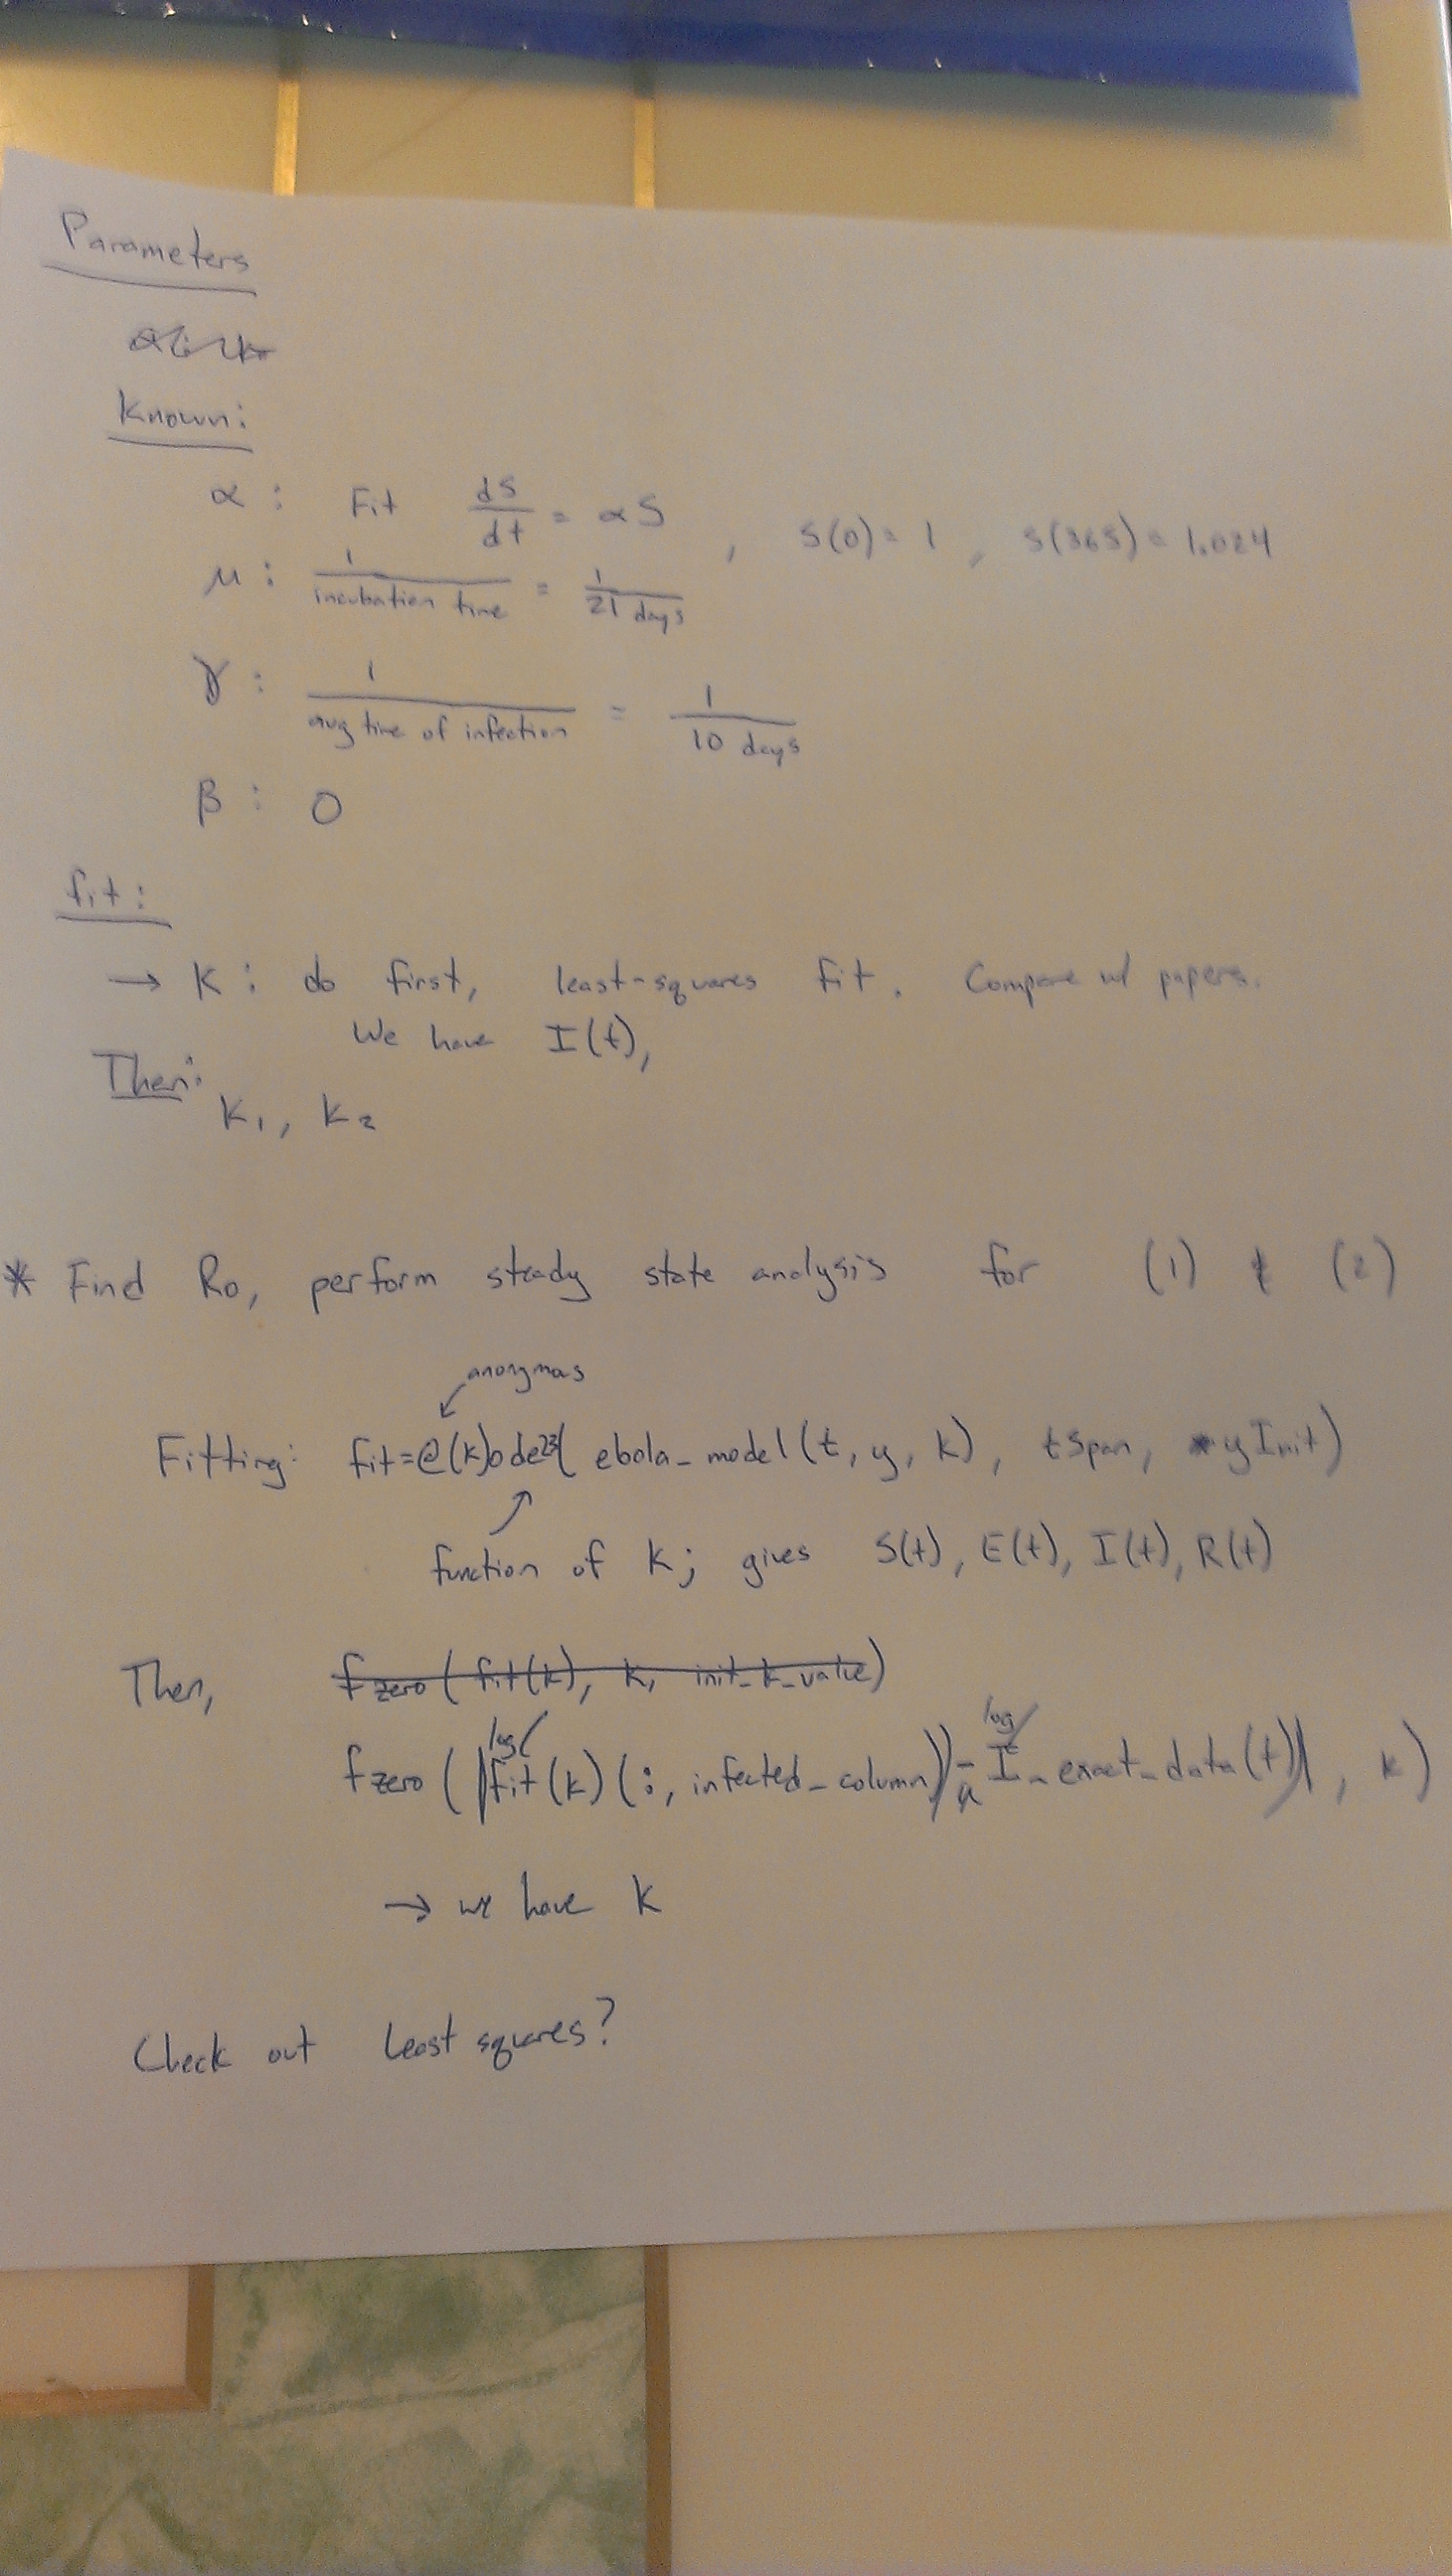 Parameters
Known:
α : Fit dS/dt = αS , S(0) = 1 , S(365) = 1.024
μ : 1/incubation time = 1/21 days
γ : 1/avg time of infection = 1/10 days
β : 0
fit:
→ K : do first, least-squares fit. Compare w/ papers.
We have I(t),
Then:
K₁, K₂
* Find R₀, perform steady state analysis for (1) & (2)
anonymas
Fitting: fit=@(k)ode23( ebola_model(t, y, k), tspan, yInit)
function of k; gives S(t), E(t), I(t), R(t)
Then, fzero( fit(k), k, init_k_value)
log( log
fzero( |fit(k)(:, infected_column)) - I_exact_data(t)| , k)
→ we have k
Check out least squares?